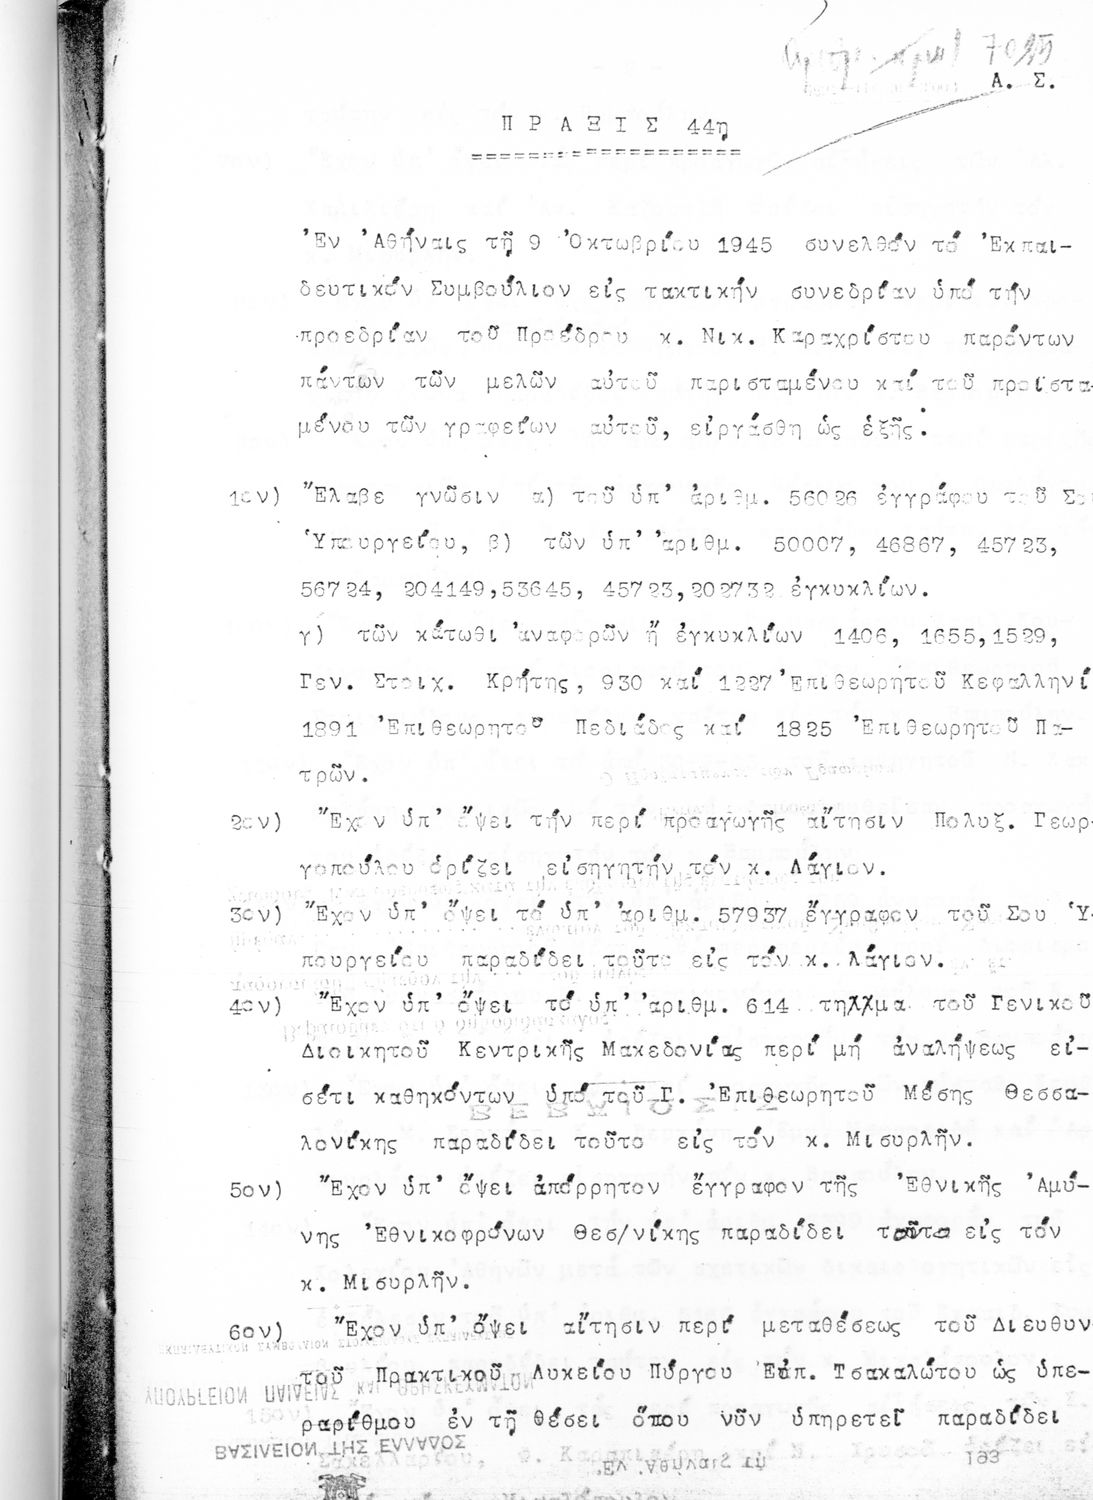 7025
Α. Σ.
Π Ρ Α Ξ Ι Σ 44η
Ἐν Ἀθήναις τῇ 9 Ὀκτωβρίου 1945 συνελθόν τό Ἐκπαι-
δευτικόν Συμβούλιον εἰς τακτικήν συνεδρίαν ὑπό τήν
προεδρίαν τοῦ Προέδρου κ. Νικ. Καραχρίστου παρόντων
πάντων τῶν μελῶν αὐτοῦ παρισταμένου καί τοῦ προϊστα-
μένου τῶν γραφείων αὐτοῦ, εἰργάσθη ὡς ἑξῆς:
1ον) Ἔλαβε γνῶσιν α) τοῦ ὑπ' ἀριθμ. 56026 ἐγγράφου τοῦ Σου
Ὑπουργείου, β) τῶν ὑπ' ἀριθμ. 50007, 46867, 45723,
56724, 204149,53645, 45723,202732 ἐγκυκλίων.
γ) τῶν κάτωθι ἀναφορῶν ἤ ἐγκυκλίων 1406, 1655,1529,
Γεν. Στοιχ. Κρήτης, 930 καί 1227 Ἐπιθεωρητοῦ Κεφαλληνί
1891 Ἐπιθεωρητοῦ Πεδιάδος καί 1825 Ἐπιθεωρητοῦ Πα-
τρῶν.
2ον) Ἔχον ὑπ' ὄψει τήν περί προαγωγῆς αἴτησιν Πολυξ. Γεωρ-
γοπούλου ὁρίζει εἰσηγητήν τόν κ. Λάγιον.
3ον) Ἔχον ὑπ' ὄψει τό ὑπ' ἀριθμ. 57937 ἔγγραφον τοῦ Σου Ὑ-
πουργείου παραδίδει τοῦτο εἰς τόν κ. Λάγιον.
4ον) Ἔχον ὑπ' ὄψει τό ὑπ' ἀριθμ. 614 τηλλμα τοῦ Γενικοῦ
Διοικητοῦ Κεντρικῆς Μακεδονίας περί μή ἀναλήψεως εἰ-
σέτι καθηκόντων ὑπό τοῦ Γ. Ἐπιθεωρητοῦ Μέσης Θεσσα-
λονίκης παραδίδει τοῦτο εἰς τόν κ. Μισυρλῆν.
5ον) Ἔχον ὑπ' ὄψει ἀπόρρητον ἔγγραφον τῆς Ἐθνικῆς Ἀμύ-
νης Ἐθνικοφρόνων Θεσ/νίκης παραδίδει τοῦτο εἰς τόν
κ. Μισυρλῆν.
6ον) Ἔχον ὑπ' ὄψει αἴτησιν περί μεταθέσεως τοῦ Διευθυν
τοῦ Πρακτικοῦ Λυκείου Πύργου Εὐπ. Τσακαλώτου ὡς ὑπε-
ραρίθμου ἐν τῇ θέσει ὅπου νῦν ὑπηρετεῖ παραδίδει
193